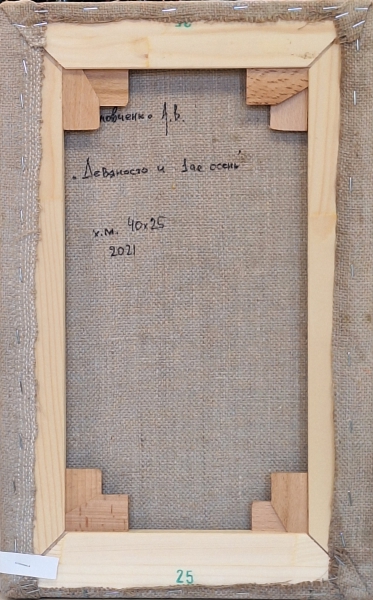 овченко А.В.
„Девяносто и 1ая осень"
х.м. 40х25
2021
25